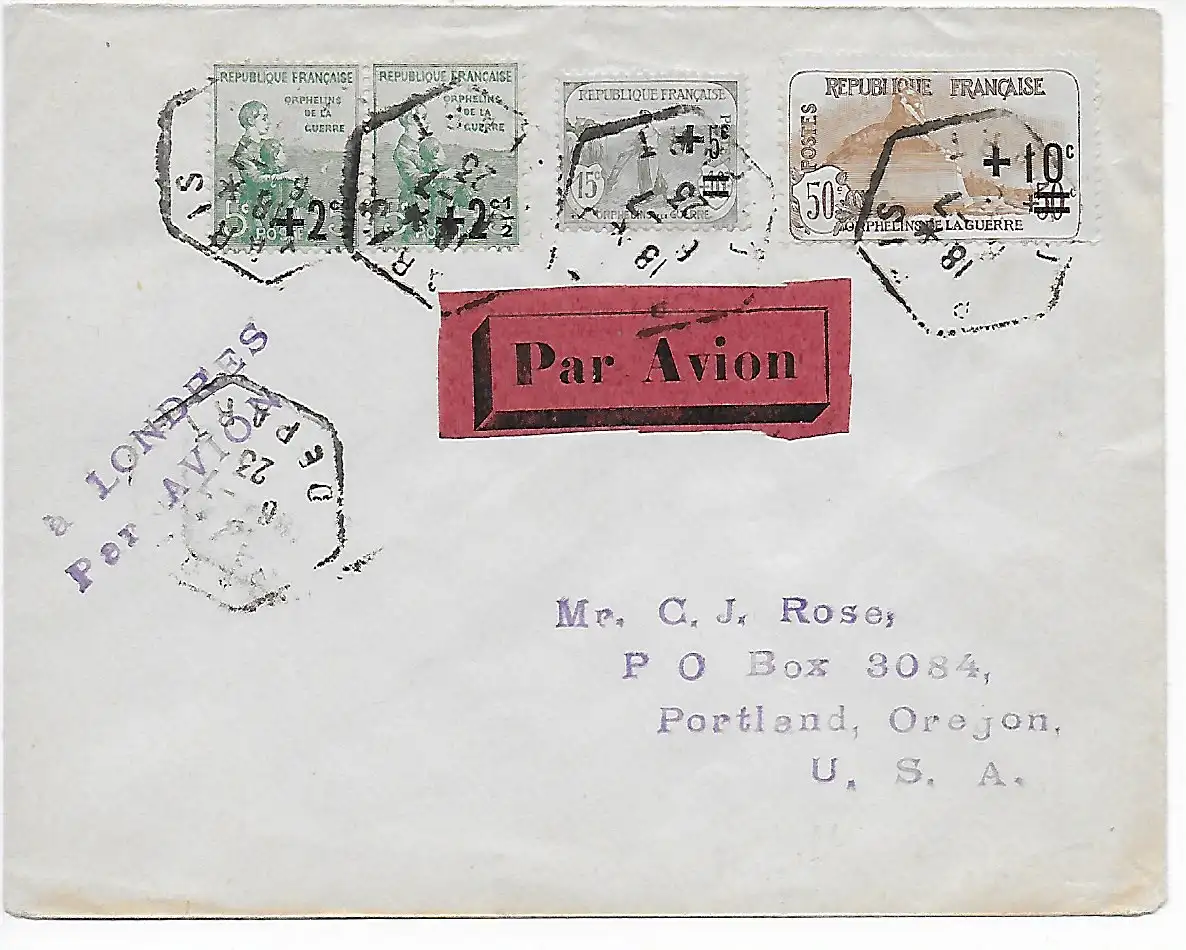 REPUBLIQUE FRANÇAISE
ORPHELINS
DE LA
GUERRE
5c +2c
POSTE
REPUBLIQUE FRANÇAISE
ORPHELINS
DE LA
GUERRE
+2c 1/2
POSTE
REPUBLIQUE FRANÇAISE
+5c
15c
ORPHELINS GUERRE
REPUBLIQUE FRANÇAISE
POSTES
+10c
50c 50c
ORPHELINS DE LA GUERRE
PARIS
18
23
Par Avion
à LONDRES
Par AVION
DEPART
23
Mr. C. J. Rose,
P O Box 3084,
Portland, Oregon,
U. S. A.